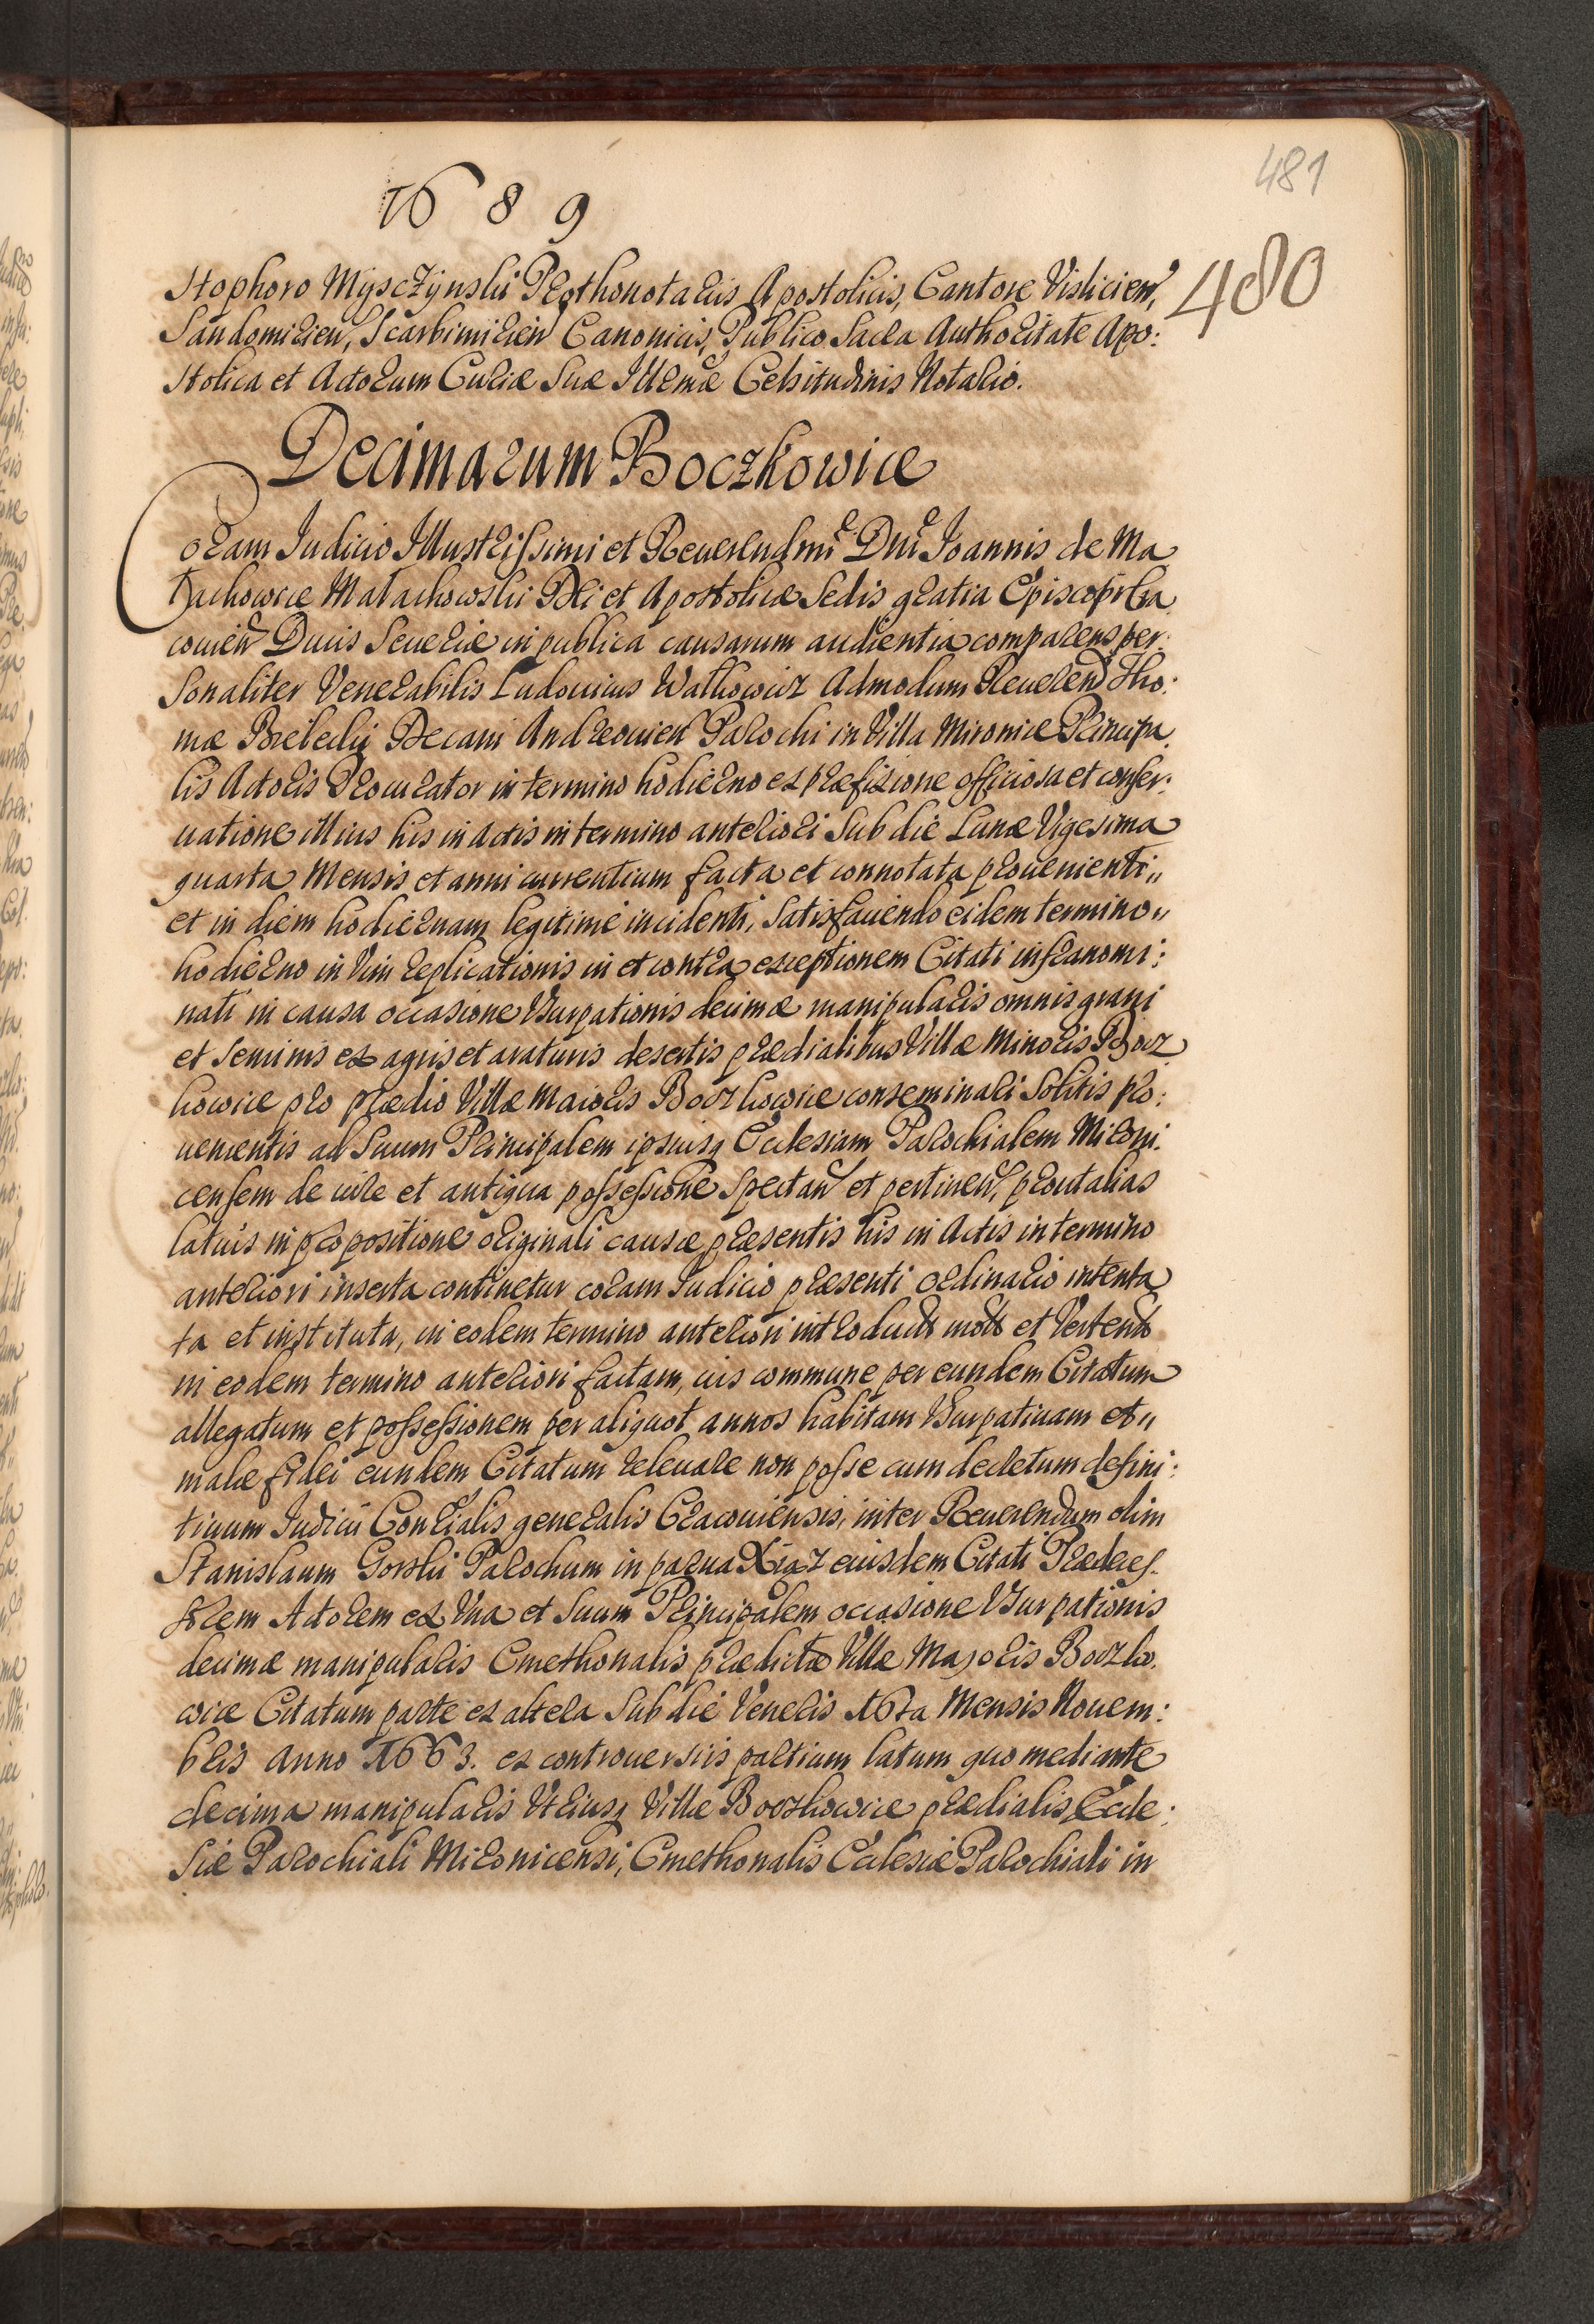 481
1689
480
stophoro Mysczynski Prothonotariis Apostolicis, Cantore Vislicien,
Sandomirien, Scarbimirien Canonicis, Publico Sacra Authoritate Apo:
stolica et Actorum Curiæ Suæ Illmæ Celsitudinis Notario.
Decimarum Boczkowice
Coram Iudicio Illustrissimi et Reuerendmi Dni Ioannis de Ma
łachowice Małachowski Dei et Apostolicæ Sedis gratia Episcopi Cra
couien Ducis Seueriæ in publica causarum audientia comparens per:
sonaliter Venerabilis Ludouicus Watkowicz Admodum Reuerend Tho:
mæ Decani Andreouien Parochi in Villa Mironice Principa
lis Actoris Procurator in termino hodierno ex præfixione officiosa et conser:
uatione illius his in actis in termino anteriori Sub die Lunæ Vigesima
quarta Mensis et anni currentium facta et connotata prouenienti„
et in diem hodiernam legitime incidenti, satisfaciendo eidem termino„
hodierno in Vim replicationis in et contra exceptionem Citati infranomi:
nati in causa occasione Vsurpationis decimæ manipularis omnis grani
et seminis ex agris et araturis desertis prædialibus Villæ Minoris Bocz
kowice pro prædio Villæ Maioris Boczkowice conseminari Solitis pro:
uenientis ad Suum Principalem ipsiusq Ecclesiam Parochialem Mironi
censem de iure et antiqua possessione spectan et pertinen, prout alias
latius in propositione originali causæ præsentis his in Actis in termino
anteriori inserta continetur coram Iudicio præsenti ordinario intenta
ta et instituta, in eodem termino anteriori introduct mot et Vertend
in eodem termino anteriori factam, ius commune per eundem Citatum
allegatum et possessionem per aliquot annos habitam Vsurpatiuam et„
malæ fidei eundem Citatum releuare non posse cum decretum defini:
tiuum Iudicii Conrialis generalis Cracouiensis, inter Reuerendum olim
Stanislaum Gorski Parochum in parua Xiąz eiusdem Citati Prædeces
sorem Actorem ex Vna et Suum Principalem occasione Vsurpationis
decimæ manipularis Cmethonalis prædictæ Villæ Majoris Boczko
wice Citatum parte ex altera Sub die Veneris 16ta Mensis Nouem:
bris Anno 1663. ex controuersiis partium latum quo mediante
decima manipularis Vtriusq Villæ Boczkowice prædialis Eccle:
siæ Parochiali Mironicensi, Cmethonalis Ecclesiæ Parochiali in